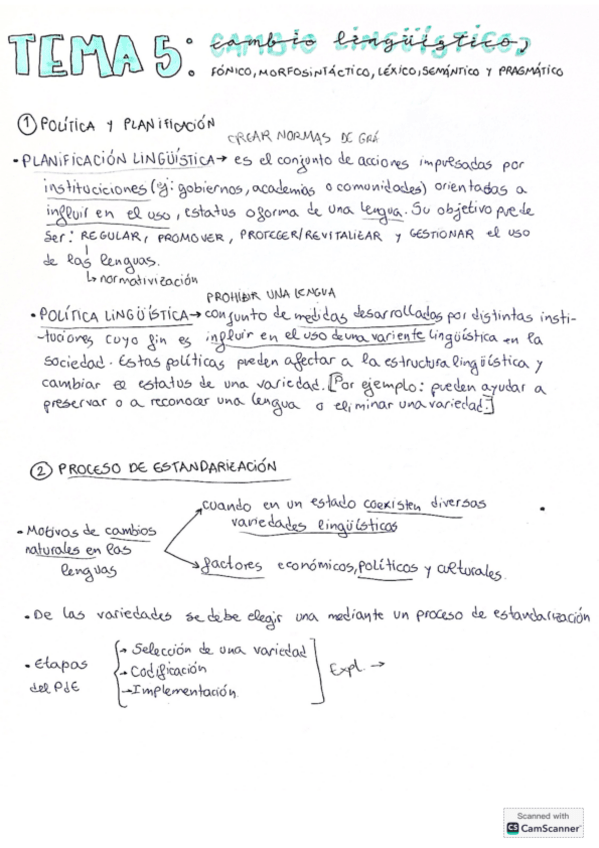 TEMA 5: cambio lingüístico,
FÓNICO, MORFOSINTÁCTICO, LÉXICO, SEMÁNTICO Y PRAGMÁTICO
① POLÍTICA Y PLANIFICACIÓN
CREAR NORMAS DE GRÁ
• PLANIFICACIÓN LINGÜÍSTICA → es el conjunto de acciones impulsadas por
instituciciones (ej: gobiernos, academias o comunidades) orientadas a
influir en el uso, estatus o forma de una lengua. Su objetivo puede
ser: REGULAR, PROMOVER, PROTEGER/REVITALIZAR y GESTIONAR el uso
de las lenguas.
↳ normativización
PROHIBIR UNA LENGUA
• POLÍTICA LINGÜÍSTICA → conjunto de medidas desarrollados por distintas insti-
-tuciones cuyo fin es influir en el uso de una variente lingüística en la
sociedad. Estas políticas pueden afectar a la estructura lingüística y
cambiar el estatus de una variedad. [Por ejemplo: pueden ayudar a
preservar o a reconocer una lengua o eliminar una variedad.]
② PROCESO DE ESTANDARIZACIÓN
cuando en un estado coexisten diversas
variedades lingüísticos
• Motivos de cambios
naturales en las
lenguas
factores económicos, políticos y culturales.
• De las variedades se debe elegir una mediante un proceso de estandarización
• Etapas
del PdE
→ Selección de una variedad
→ Codificación
→ Implementación
Expl. →
Scanned with
CS CamScanner